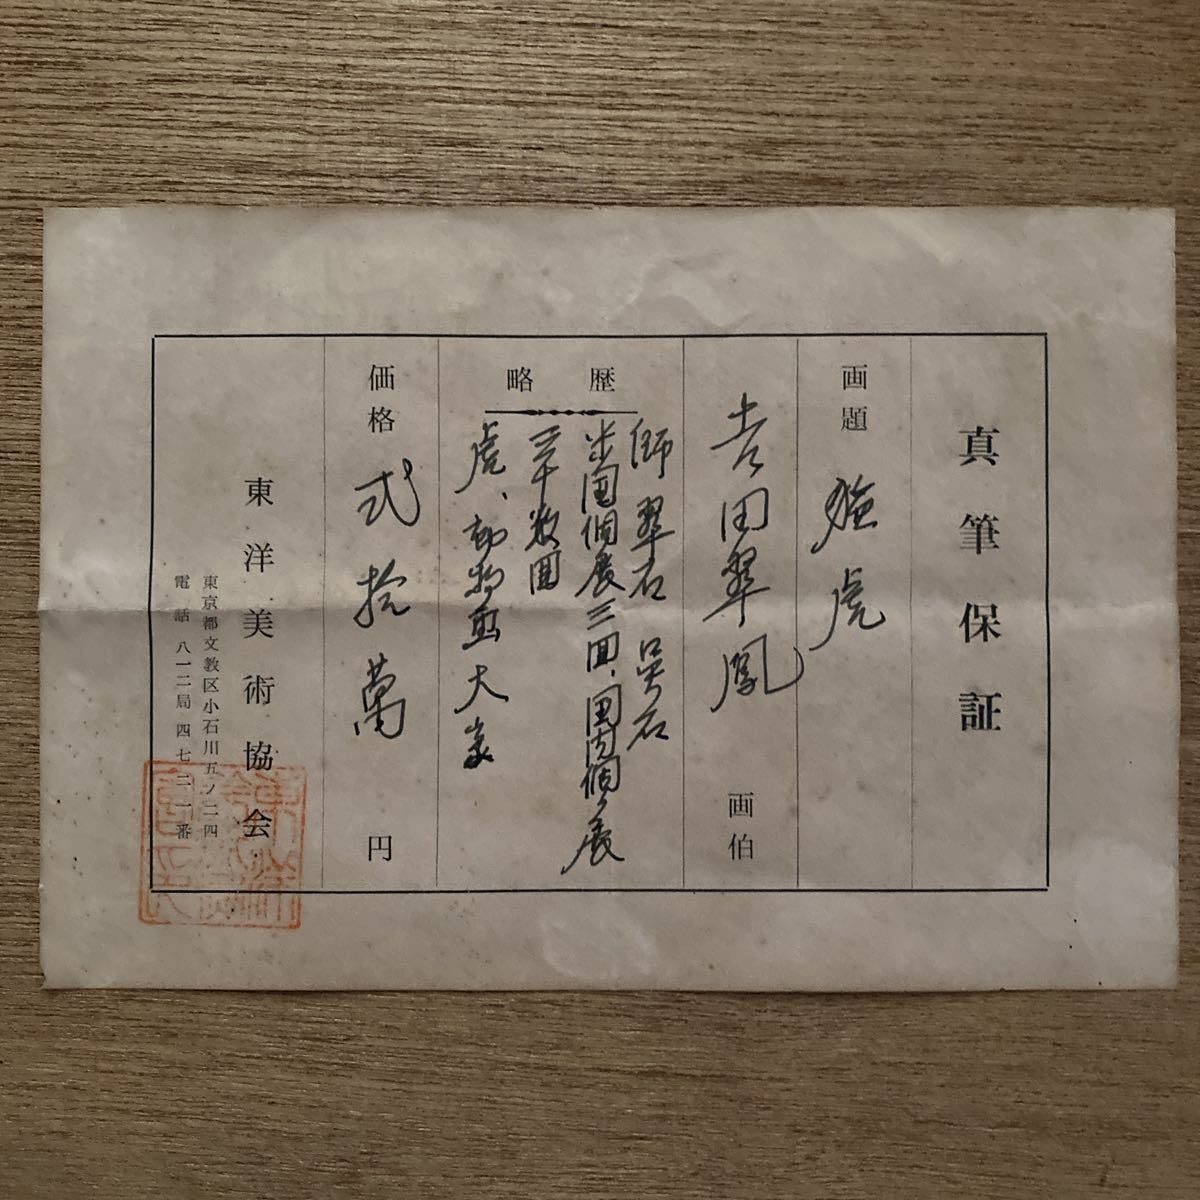 真筆保証
画題 猛虎
吉田翠鳳 画伯
略歴
師 翠石 呉石
米国個展三回、国内個展
三十数回
虎、動物画大家
価格 弍拾萬 円
東洋美術協会
東京都文教区小石川五ノ二ノ四
電話 八一二局四七二一番